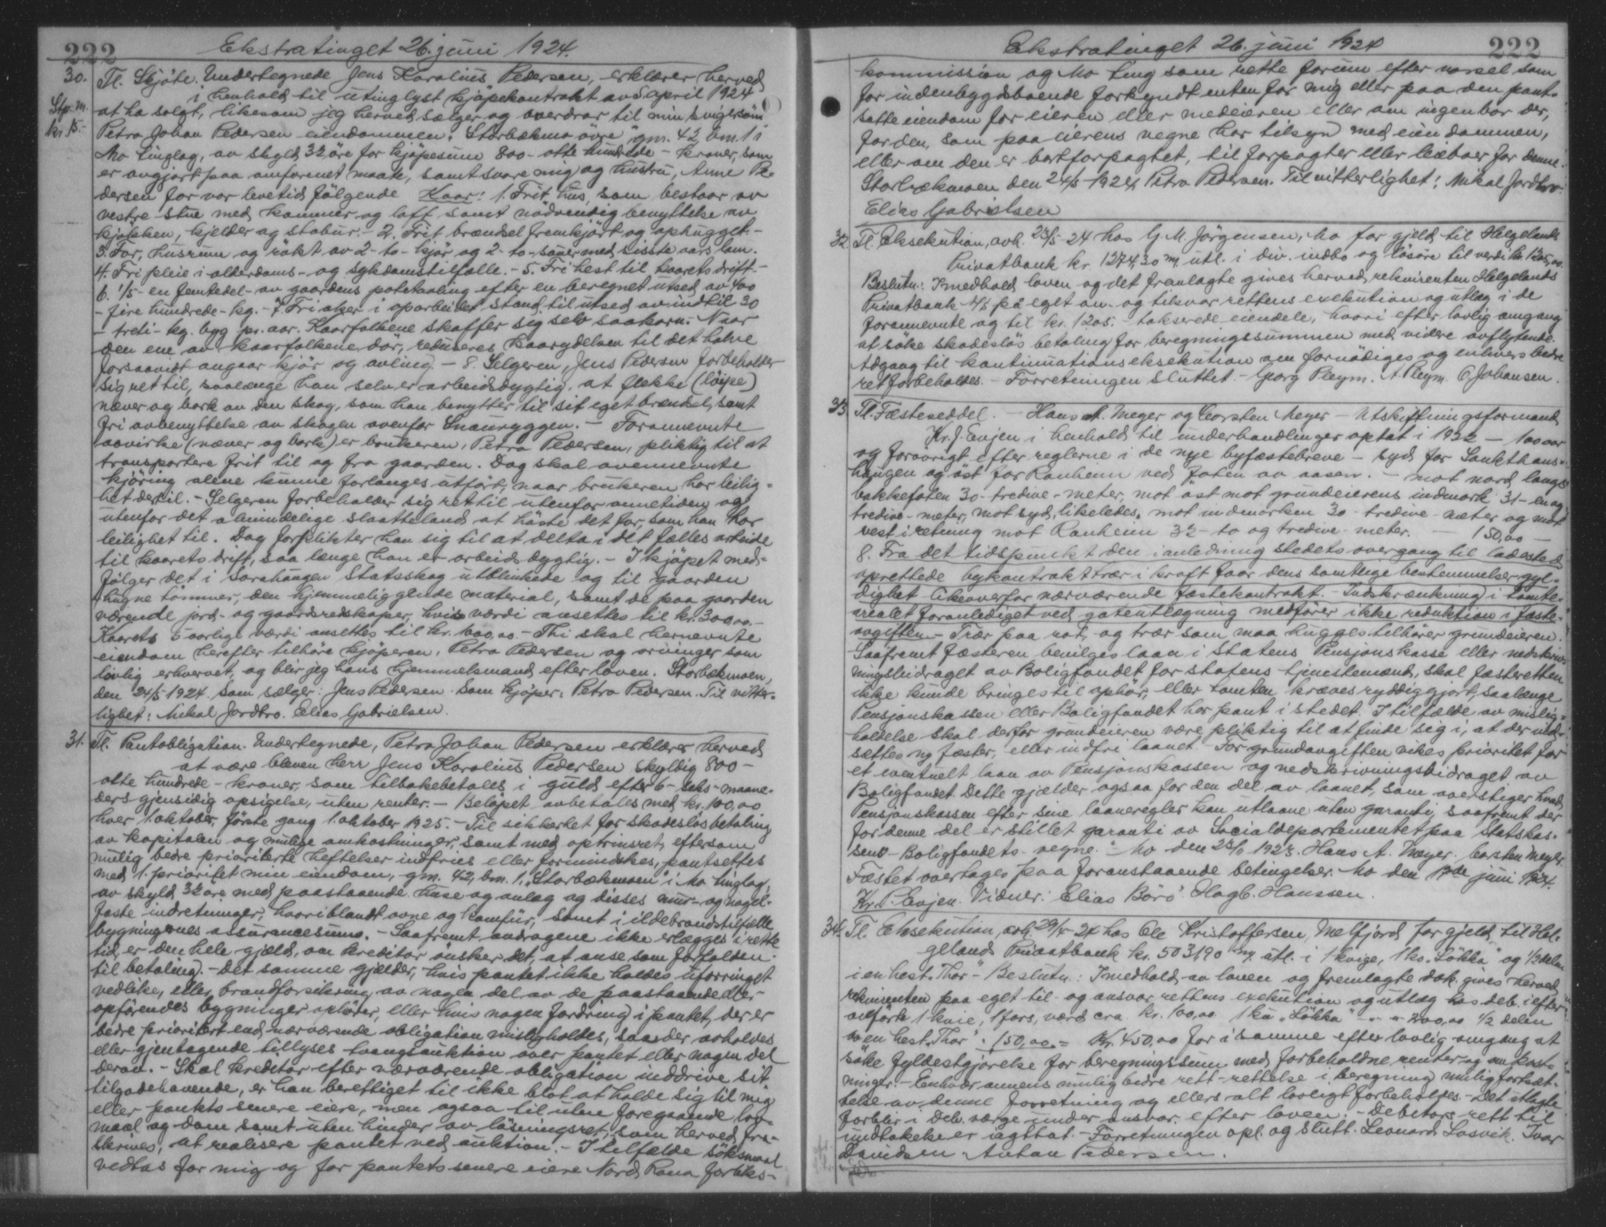 222
Ekstratinget 26. juni 1924.
30. Tl. Skjöte. Undertegnede Jens Karolius Pedersen, erklærer herved
i henhold til utinglyst kjöpekontrakt av 5 april 1924
Stp. m. at ha solgt, likesom jeg herved sælger og overdrar til min svigersön
kr. 15.- Petra Johan Pedersen eiendommen: Storbækmo övre "gm. 42 bm. 1 i
Mo tinglag, av skyld 32 öre for kjöpesum 800 - otte hundrede - kroner, som
er avgjort paa omforenet maate, samt svare mig og hustru, Anne Pe-
dersen for vor levetid fölgende Kaar: 1. Frit hus som bestaar av
vestre stue med kammer og loft samt nödvendig benyttelse av
kjökken, kjelder og stabur. - 2. Frit brændsel fremkjört og ophugget. -
3. For, husrum og rökt av 2 - to - kjör og 2 - to - sauer med sidste aars lam.
4. Fri pleie i alderdoms- og sykdomstilfælle. - 5. Fri hest til kaarets drift -
6. 1/5 - en femtedel - av gaardens potetavling efter en beregnet utsæd av 400
- fire hundrede - kg. - 7. Fri aker i oparbeidet stand til utsæd av indtil 30
- treti - kg. byg pr. aar. Kaarfolkene skaffer sig selv saakorn. - Naar
den ene av kaarfolkene dör, reduseres kaarydelsen til det halve
forsaavidt angaar kjör og avling - 8. Selgeren, Jens Pedersen forbeholder
sig ret til, saalænge han selv er arbeidsdygtig, at flække (löipe)
næver og bark av den skog, som han benytter til sit eget brændsel, samt
fri avbenyttelse av skogen ovenfor Snauryggen. - Forannevnte
aavirke (næver og bark) er brukeren, Petra Pedersen, pliktig til at
transportere frit til og fra gaarden. Dog skal ovennevnte
kjöring alene kunne forlanges utfört, naar brukeren har leilig-
het dertil. - Selgeren forbeholder sig ret til utenfor onnetiden og
utenfor det almindelige slaatteland at höste det for, som han har
leilighet til. Dog forplikter han sig til at delta i det fælles arbeide
til kaarets drift, saa længe han er arbeidsdygtig. - I kjöpet med-
fölger det i Sorehaugen Statsskog utblinkede og til gaarden
hugne tömmer, den hjemmeliggende material, samt de paa gaarden
værende jord- og gaardsredskaper, hvis værdi ansettes til kr. 300,00 -
Kaarets 5 aarlige værdi ansettes til kr. 1000,00 - Thi skal hernevnte
eiendom herefter tilhöre kjöperen, Petra Pedersen og arvinger som
lovlig erhvervet, og blir jeg hans hjemmelsmand efter loven. Storbækmoen,
den 24/5 1924. Som sælger: Jens Pedersen. Som kjöper: Petra Pedersen. Til vitter-
lighet: Mikal Jordbro. Elias Gabrielsen.
31. Tl. Pantobligation. Undertegnede, Petra Johan Pedersen erklærer herved
at være bleven herr Jens Karolius Pedersen skyldig 800 -
otte hundrede - kroner, som tilbakebetales i guld efter 6 - seks - maane-
ders gjensidig opsigelse, uten renter. - Belöpet avbetales med kr. 100,00
hver 1. oktober, förste gang 1. oktober 1925. - Til sikkerhet for skadeslös betaling
av kapitalen og mulige omkostninger, samt med optrinsret, eftersom
mulig bedre prioriterte heftelser indfries eller formindskes, pantsettes
med 1. prioritet min eiendom, gm. 42, bm. 1. "Storbækmoen" i Mo tinglag,
av skyld 32 öre med paastaaende huse og anlæg og disses mur- og nagel-
faste indretninger, hvoriblandt ovne og komfür, samt i ildebrandstilfælle
bygningernes assurancesum. - Saafremt avdragene ikke erlægges i rette
tid, er den hele gjeld, om kreditor önsker det, at anse som forfalden
til betaling. - Det samme gjelder, hvis pantet ikke holdes uforringet
vedlike, eller brandforsikring av nogen del av de paastaaende eller
opförendes bygninger ophörer, eller hvis nogen fordring i pantet, der er
bedre prioritert end nærværende obligation misligholdes, saa der avholdes
eller gjentagende tillyses tvangsauktion over pantet eller nogen del
derav. - Skal kreditor efter nærværende obligation inddrive sit
tilgodehavende, er han berettiget til ikke blot at holde sig til mig
eller pantets senere eiere, men ogsaa til uten foregaaende lov-
maal og dom samt uten hinder av lösningsret, som herved fra-
skrives, at realisere pantet ved auktion. - I tilfælde söksmaal
vedtas for mig og for pantets senere eiere Nord Rana forliks-
Ekstratinget 26. juni 1924
222
kommission og Mo ting som rette forum efter varsel som
for indenbygdsboende forkyndt enten for mig eller paa den pant-
satte eiendom for eieren eller medeieren eller om ingen bor der,
for den, som paa eierens vegne har tilsyn med eiendommen,
eller om den er bortforpagtet, til forpagter eller leieboer for denne
Storbækmoen den 24/5 - 1924 Petra Pedersen. Til vitterlighet: Mikal Jordbro
Elias Gabrielsen
32. Tl. Eksekution, avh. 23/5 - 24 hos G. M. Jörgensen, Mo for gjeld til Helgelands
Privatbank kr. 1274,30 m/ utl. i div. indbo og lösöre til verdi kr. 1205,00.
Beslutn.: I medhold av loven og det fremlagte gives herved, rekvirenten Helgelands
Privatbank A/S på eget an- og tilsvar rettens exekution og utlæg i de
forannevnte og til kr. 1205.- takserede eiendele, hvori efter lovlig omgang
at söke skadeslös betaling for beregningssummen med videre avflytende.
Adgang til kontinuationseksekution om fornödiges og enhvers bedre
ret forbeholdes. - Forretningen sluttet - Georg Pleym. A Pleym. O Johansen.
33. Tl. Fæsteseddel. - Hans A. Meyer og Corsten Meyer - Utskiftningsformand
Kr. J. Evjen i henhold til underhandlinger optat i 1922 - 100 aar
og forövrigt efter reglerne i de nye byfestebreve - syd for Sankthans-
haugen og öst for Ranheim ved foten av aasen. - mot nord langs
bakkefoten 30 - tredive - meter, mot öst mot grundeierens indmark 31 - en og
tredive - meter, mot syd, likeledes, mot indmarken 30 - tredive - meter og mot
vest i retning mot Ranheim 32 - to og tredive - meter. - 150,00 -
8. Fra det tidspunkt den i anledning stedets overgang til ladested
oprettede bykontrakt trær i kraft faar dens samtlige bestemmelser gyl-
dighet likeoverfor nærværende fæstekontrakt. - Indskrænkning i tomte-
arealet foranlediget ved gateutlægning medförer ikke reduktion i fæste-
avgiften. - Trær paa rot, og trær som maa hugges tilhörer grundeieren.
Saafremt fæsteren bevilges laan i Statens Pensjonskasse eller nedskriv-
ningsbidraget av Boligfondet for statens tjenestemænd, skal fæsteretten
ikke kunde bringes til ophör, eller tomten kræves ryddiggjort, saalænge
Pensjonskassen eller Boligfondet har pant i stedet. I tilfælde av mislig-
holdelse skal derfor grundeieren være pliktig til at finde sig i, at der ind-
settes ny fæster, eller indfri laanet. For grundavgiften vikes prioritet for
et eventuelt laan av Pensjonskassen og nedskrivningsbidraget av
Boligfondet. Dette gjælder ogsaa for den del av laanet, som overstiger hvad
Pensjonskassen efter sine laaneregler kan utlaane uten garanti, saafremt der
for denne del er stillet garanti av Socialdepartementet paa Statskas-
sens - Boligfondets vegne. - Mo den 1923. Hans A. Meyer. Corsten Meyer
Fæstet overtages paa foranstaaende betingelser. Mo den juni 1924.
Kr. J. Evjen. Vidner: Elias Börö Hagb. Hanssen.
34. Tl. Eksekution, avh. 29/5 - 24 hos Ole Kristoffersen, Melfjord for gjeld til Hel-
gelands Privatbank kr. 503,90 m/ utl. i 1 kvige, 1 ko "Löbba" og 1/2 delen
i en hest. Thor - Beslutn.: I medhold av loven og fremlagte dok. gives herved
rekvirenten paa eget til- og ansvar rettens exekution og utlæg hos deb. i efter
opförte 1 kvie, 1 fors, værd cra kr. 100,00 1 ku "Löbba" " " 200,00 1/2 delen
av en hest "Thor" : 150,00 = Kr. 450,00 for i samme efter lovlig omgang at
söke fyldestgjörelse for beregningssum med forbeholdne renter og omkost-
ninger. - Enhver annens mulig bedre rett - rettelse i beregning mulig fortsæt-
telse av denne forretning og ellers alt lovligt forbeholdes. - Det utlagte
forblir i Deb. værge under ansvar efter loven. - Debitors rett til
undtakelse er iagttat. - Forretningen opl. og slutt. Leonard Lasvik. Ivar
Davidsen Antan Pedersen.